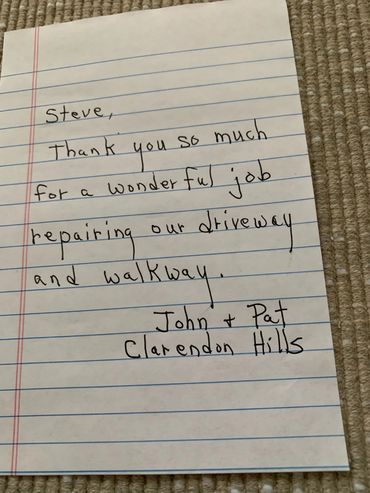 Steve,
Thank you so much
for a wonderful job
repairing our driveway
and walkway.
John + Pat
Clarendon Hills